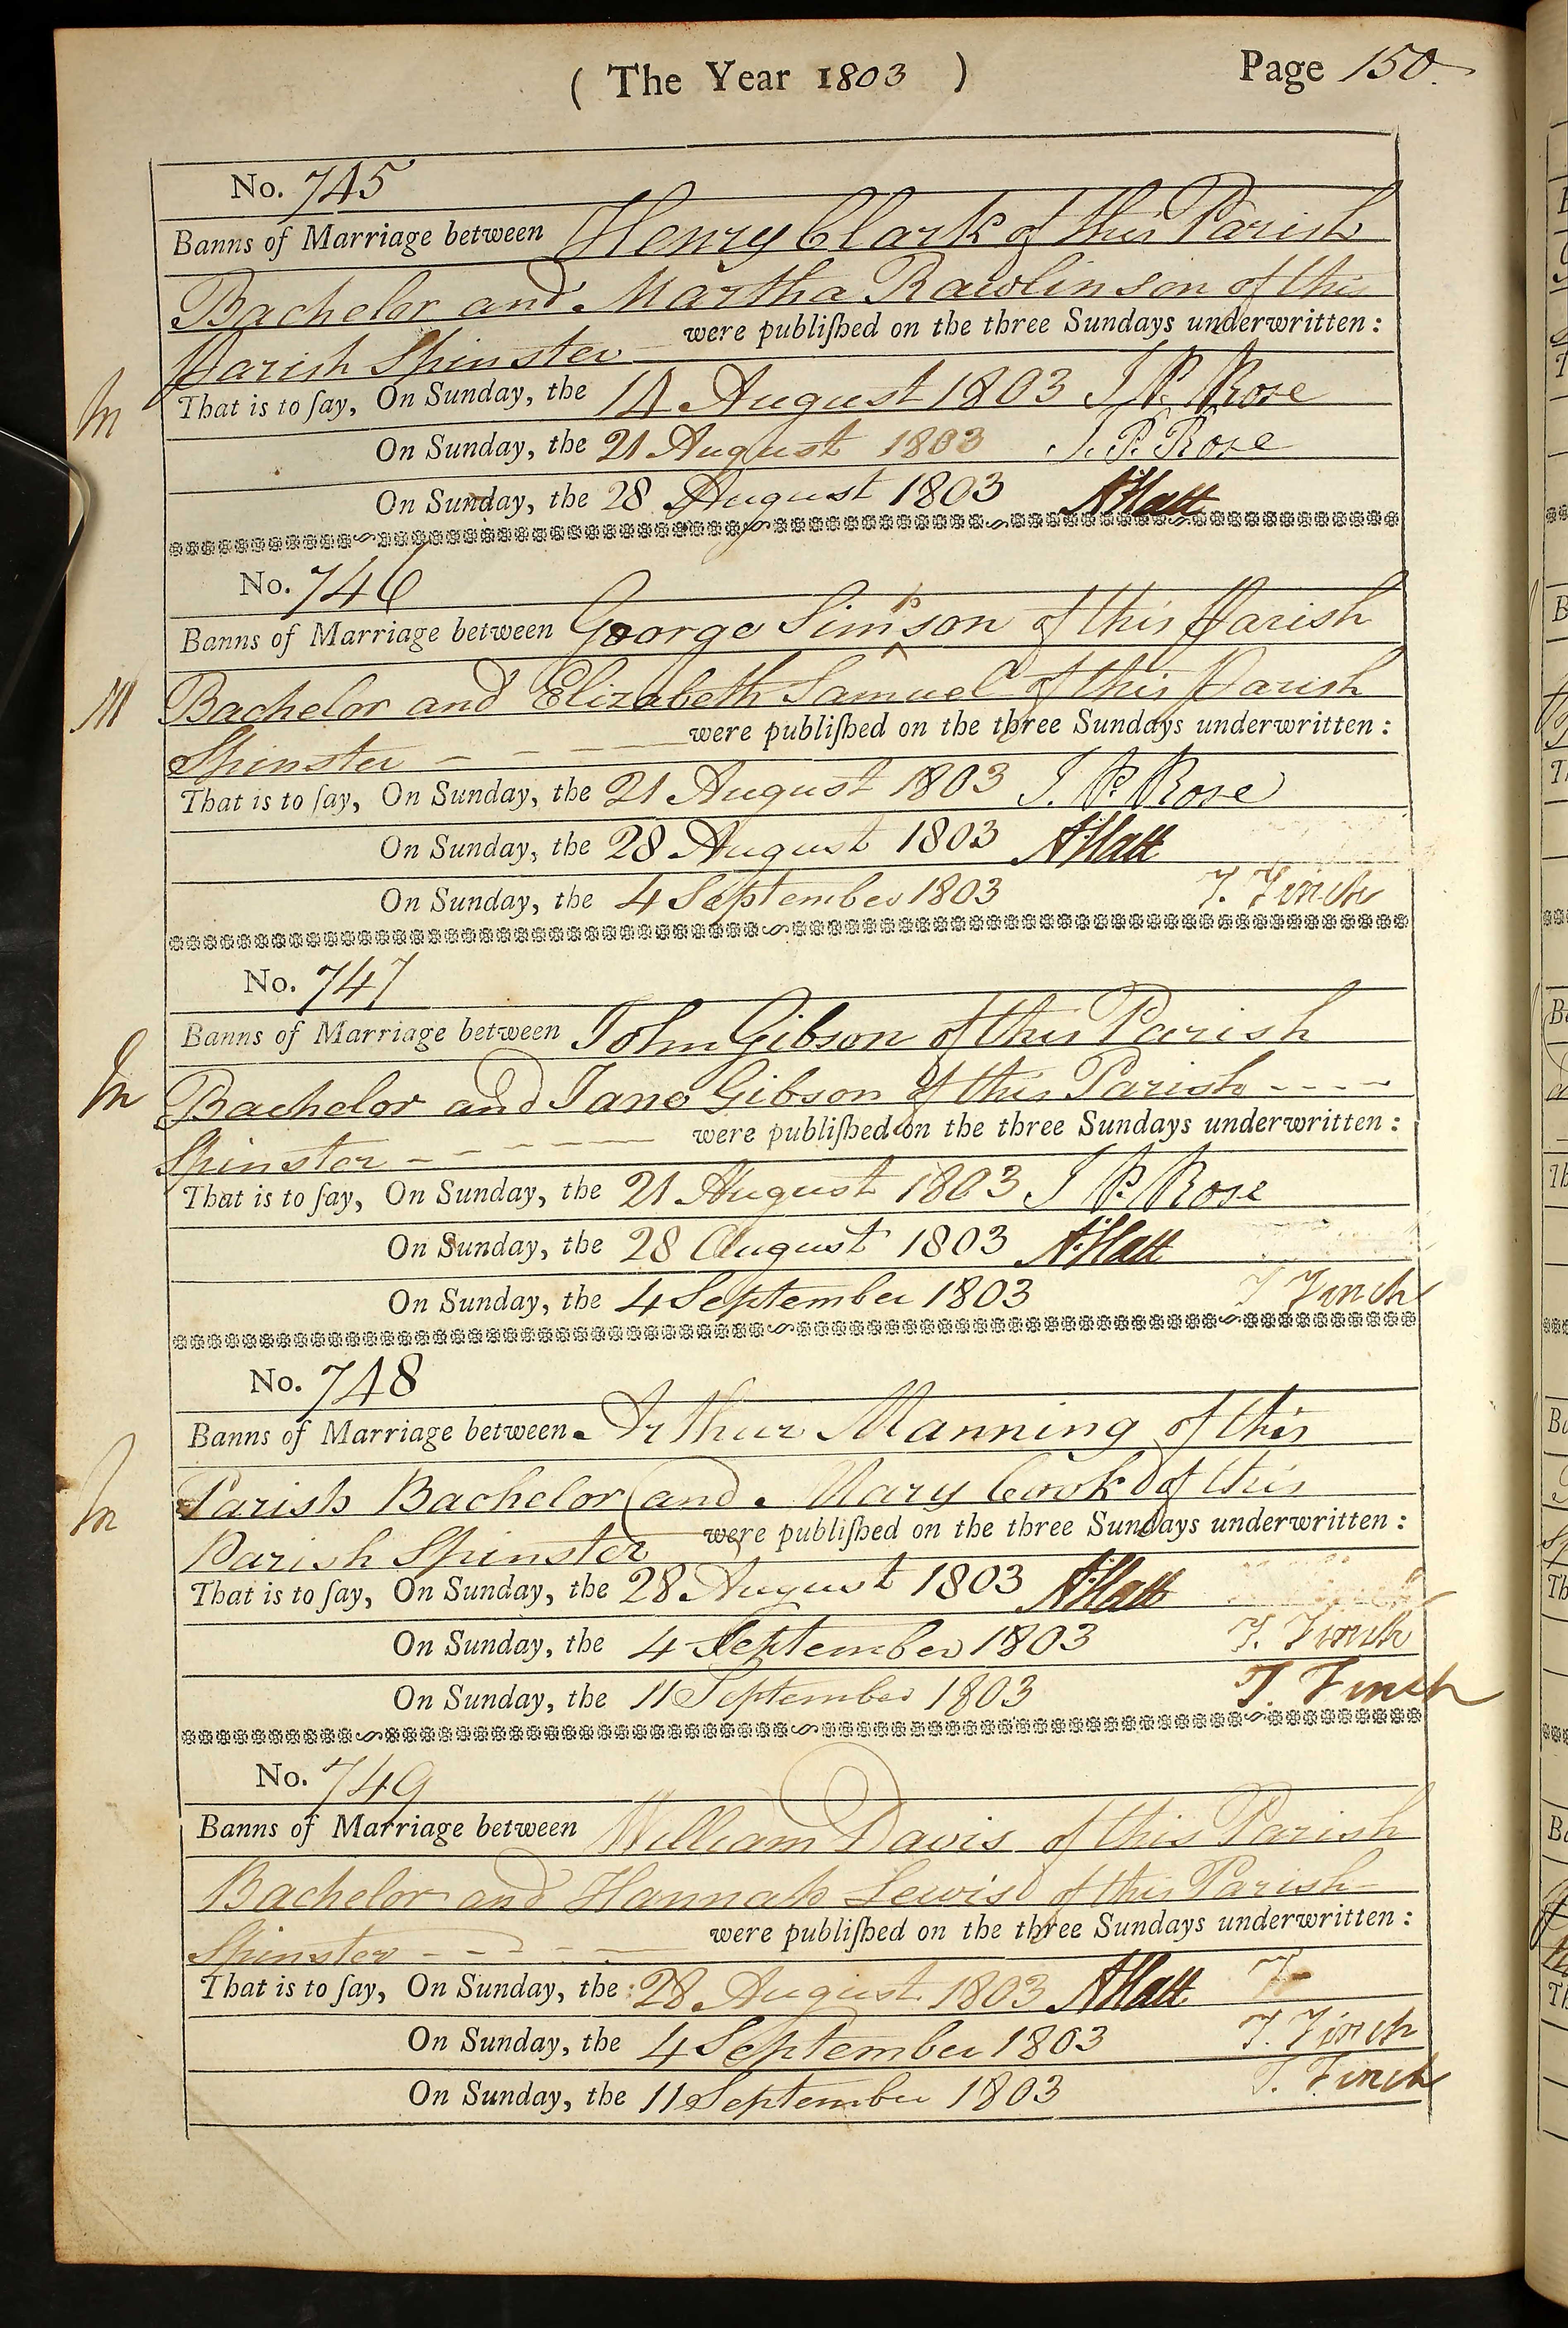 ( The Year 1803 ) Page 150
No. 745
Banns of Marriage between Henry Clark of this Parish
Bachelor and Martha Rawlinson of this
Parish Spinster were publiſhed on the three Sundays underwritten :
That is to ſay, On Sunday, the 14 August 1803 J. P. Rose
M
On Sunday, the 21 August 1803 J. P. Rose
On Sunday, the 28 August 1803 A Hatt
No. 746
Banns of Marriage between George Simpson of this Parish
M
Bachelor and Elizabeth Samuel of this Parish
Spinster were publiſhed on the three Sundays underwritten :
That is to ſay, On Sunday, the 21 August 1803 J. P. Rose
On Sunday, the 28 August 1803 A Hatt
On Sunday, the 4 September 1803 T. Finch
No. 747
Banns of Marriage between John Gibson of this Parish
M
Bachelor and Jane Gibson of this Parish - - - -
Spinster - - - - were publiſhed on the three Sundays underwritten :
That is to ſay, On Sunday, the 21 August 1803 J P. Rose
On Sunday, the 28 August 1803 A Hatt
On Sunday, the 4 September 1803 T Finch
No. 748
Banns of Marriage between Arthur Manning of this
M
Parish Bachelor and Mary Cook of this
Parish Spinster were publiſhed on the three Sundays underwritten :
That is to ſay, On Sunday, the 28 August 1803 A Hatt
On Sunday, the 4 September 1803 T. Finch
On Sunday, the 11 September 1803 T. Finch
No. 749
Banns of Marriage between William Davis of this Parish
Bachelor and Hannah Lewis of this Parish
Spinster - - - - were publiſhed on the three Sundays underwritten :
That is to ſay, On Sunday, the 28 August 1803 A Hatt T
On Sunday, the 4 September 1803 T. Finch
On Sunday, the 11 September 1803 T. Finch